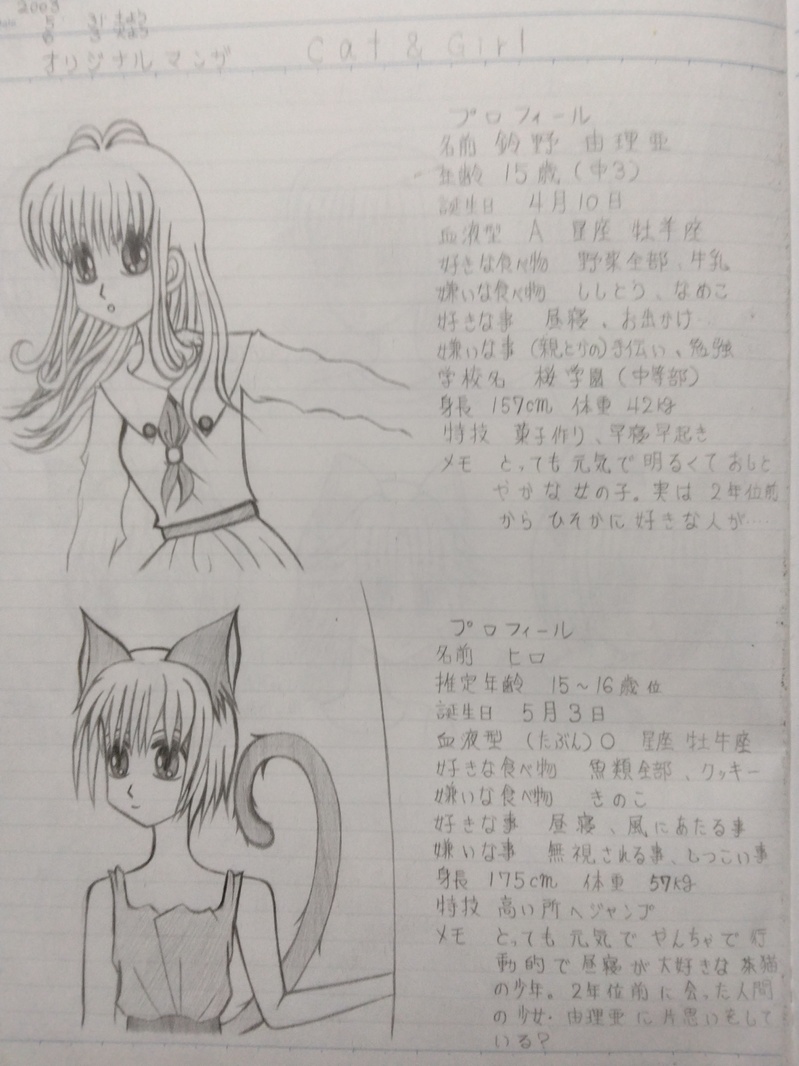 2003
5 31 土よう
6 3 火よう
オリジナルマンガ Cat & Girl
プロフィール
名前 鈴野 由理亜
年齢 15歳(中3)
誕生日 4月10日
血液型 A 星座 牡羊座
好きな食べ物 野菜全部、牛乳
嫌いな食べ物 ししとう、なめこ
好きな事 昼寝、お出かけ
嫌いな事 (親とかの)手伝い、勉強
学校名 桜学園(中等部)
身長 157cm 体重 42kg
特技 菓子作り、早寝早起き
メモ とっても元気で明るくておしと
やかな女の子。実は2年位前
からひそかに好きな人が……
プロフィール
名前 ヒロ
推定年齢 15~16歳位
誕生日 5月3日
血液型 (たぶん)O 星座 牡牛座
好きな食べ物 魚類全部、クッキー
嫌いな食べ物 きのこ
好きな事 昼寝、風にあたる事
嫌いな事 無視される事、しつこい事
身長 175cm 体重 57kg
特技 高い所へジャンプ
メモ とっても元気でやんちゃで行
動的で昼寝が大好きな茶猫
の少年。2年位前に会った人間
の少女・由理亜に片思いをして
いる?